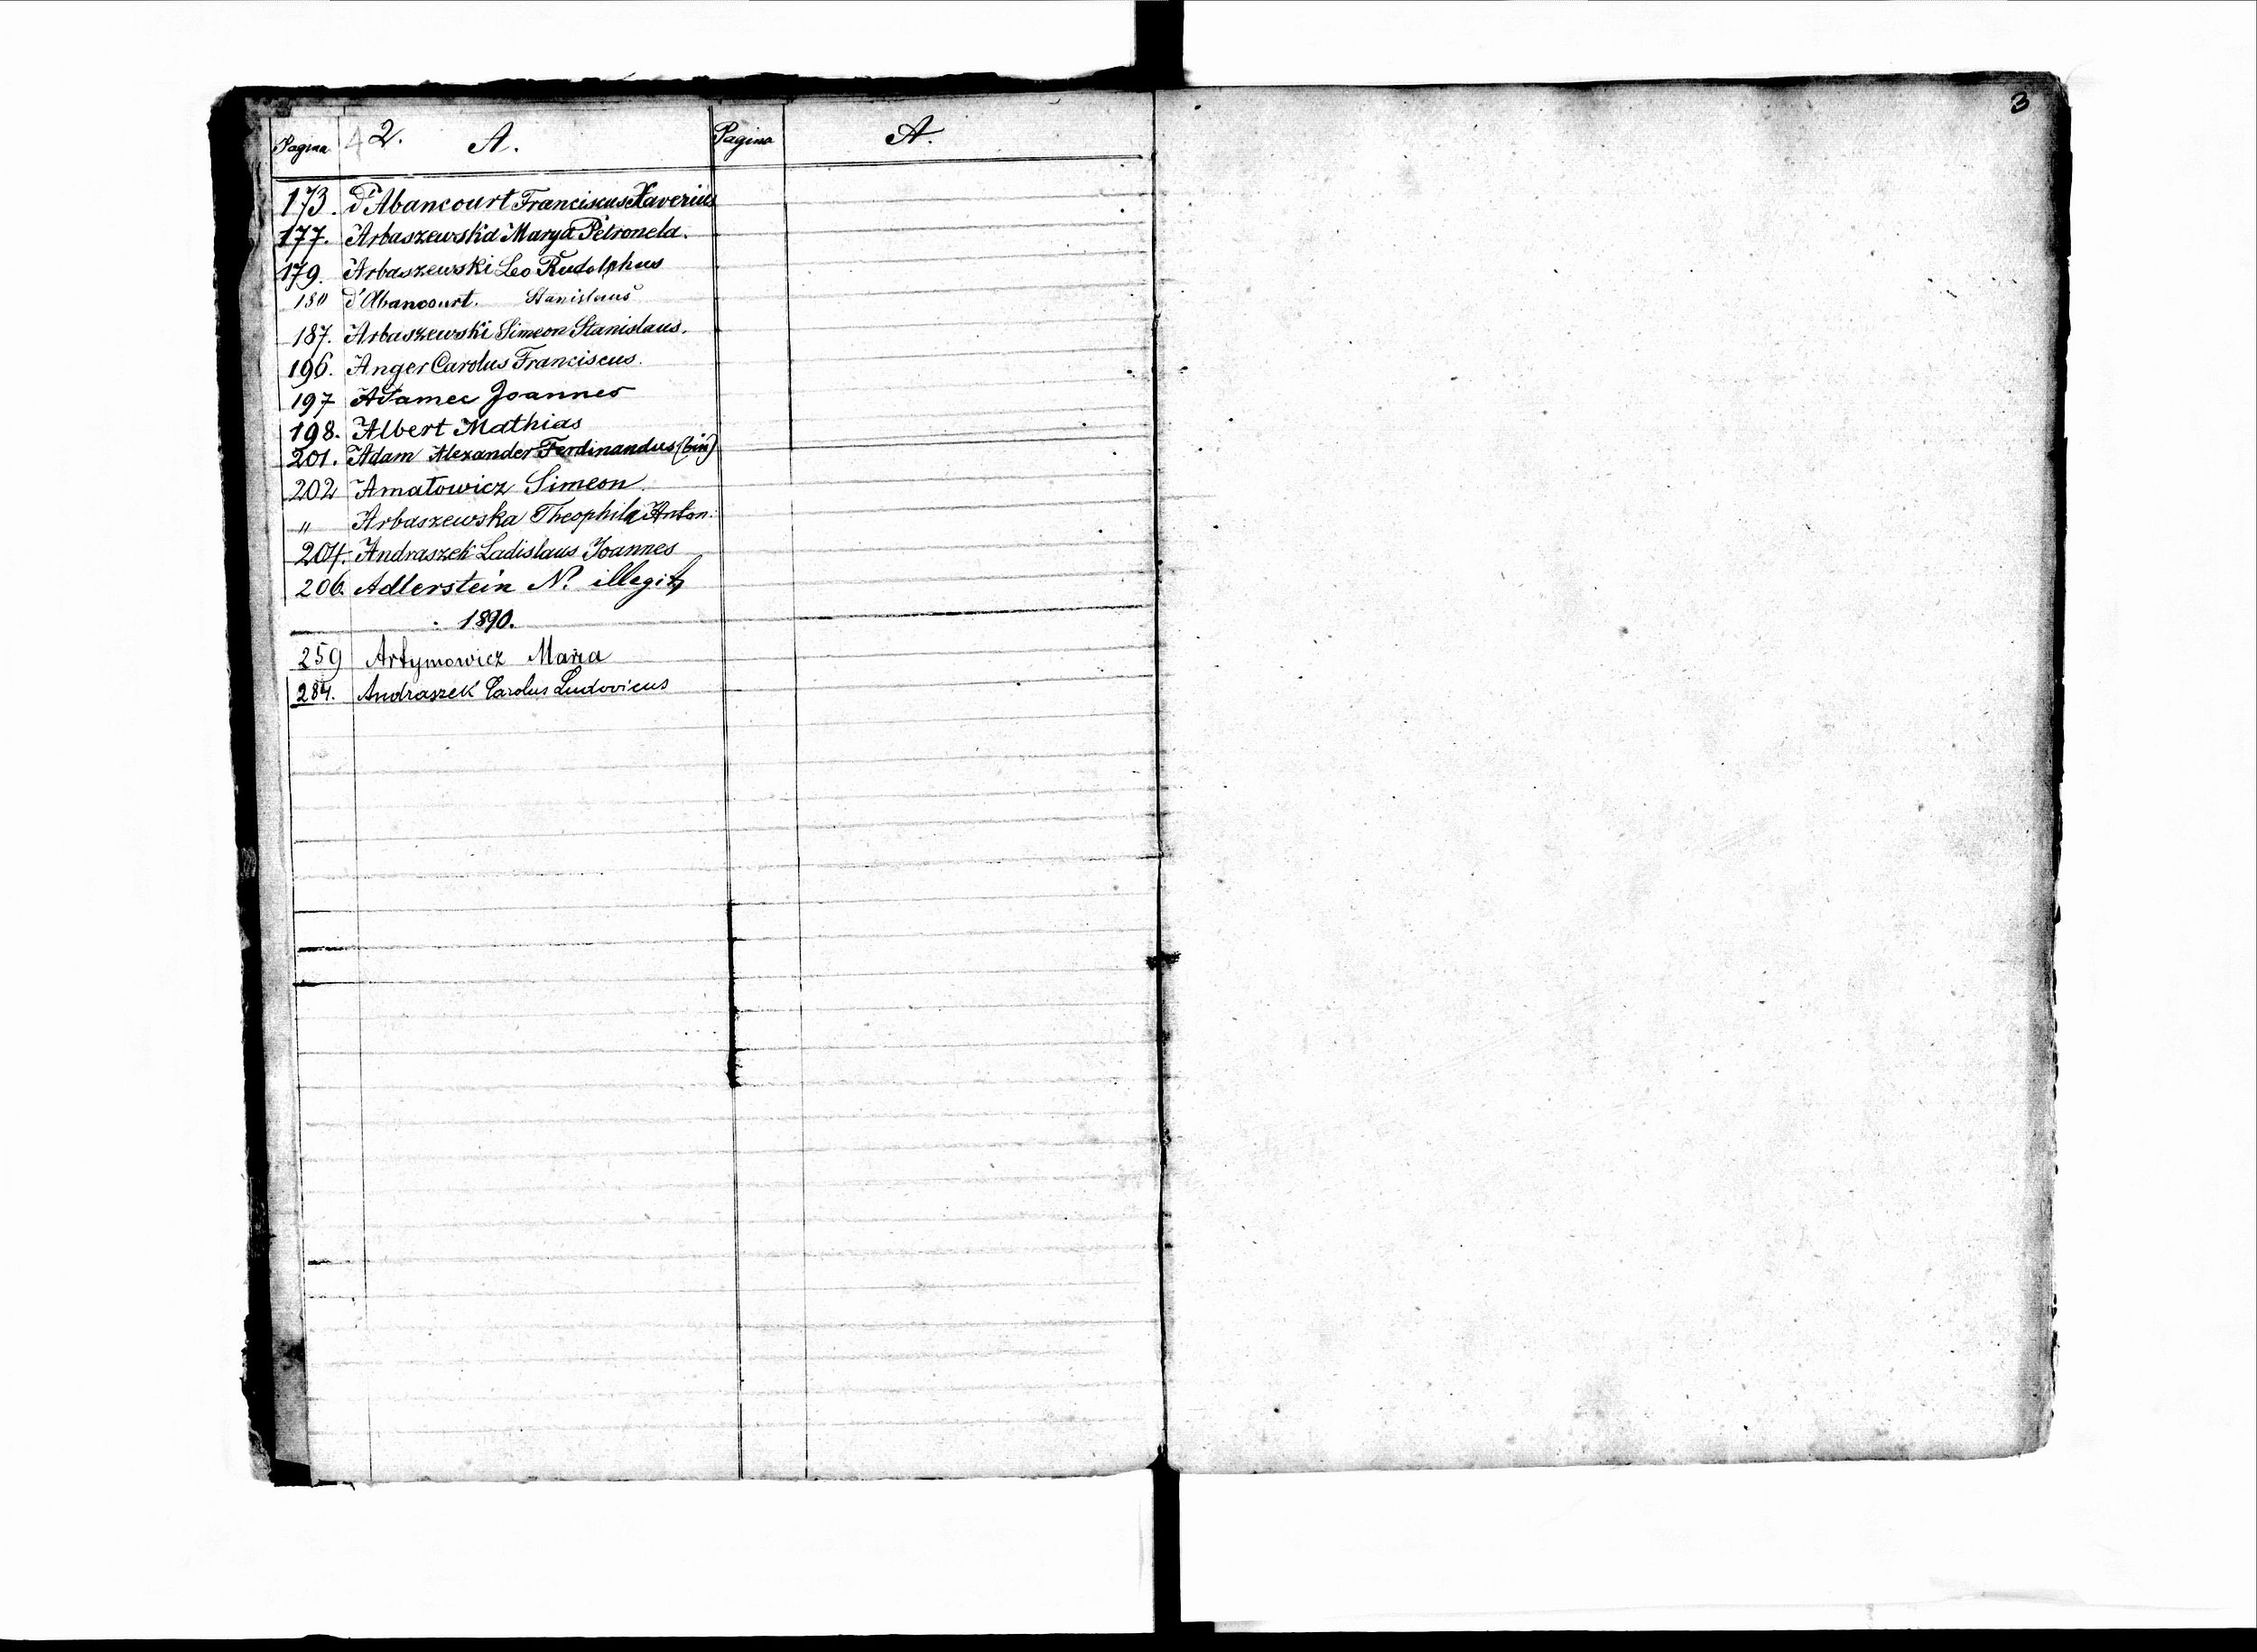 Pagina 2. A. Pagina A.
3
173. d'Abancourt Franciscus Xaverius
177. Arbaszewska Marya Petronela.
179. Arbaszewski Leo Rudolphus
180 d'Abancourt. Stanislaus
187. Arbaszewski Simeon Stanislaus.
196. Anger Carolus Franciscus.
197 Adamec Joannes
198. Albert Mathias
201. Adam Alexander Ferdinandus (bin)
202 Amatowicz Simeon
" Arbaszewska Theophila Anton:
204. Andraszek Ladislaus Joannes
206. Adlerstein N. illegit
1890.
259 Artymowicz Maria
284. Andraszek Carolus Ludovicus